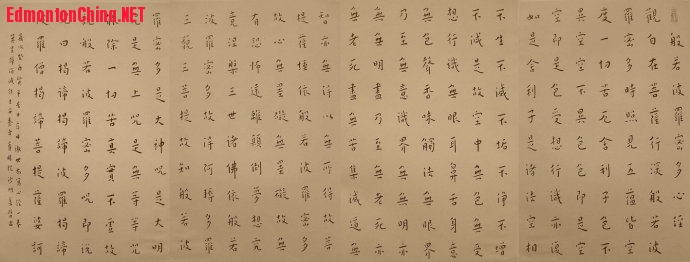 EdmontonChina.NET
般若波羅蜜多心經
觀自在菩薩行深般若波
羅蜜多時照見五蘊皆空
度一切苦厄舍利子色不
異空空不異色色即是空
空即是色受想行識亦復
如是舍利子是諸法空相
不生不滅不垢不淨不增
不減是故空中無色無受
想行識無眼耳鼻舌身意
無色聲香味觸法無眼界
乃至無意識界無無明亦
無無明盡乃至無老死亦
無老死盡無苦集滅道無
智亦無得以無所得故菩
提薩埵依般若波羅蜜多
故心無罣礙無罣礙故無
有恐怖遠離顛倒夢想究
竟涅槃三世諸佛依般若
波羅蜜多故得阿耨多羅
三藐三菩提故知般若波
羅蜜多是大神咒是大明
咒是無上咒是無等等咒
能除一切苦真實不虛故
說般若波羅蜜多咒即說
咒曰揭諦揭諦波羅揭諦
波羅僧揭諦菩提薩婆訶